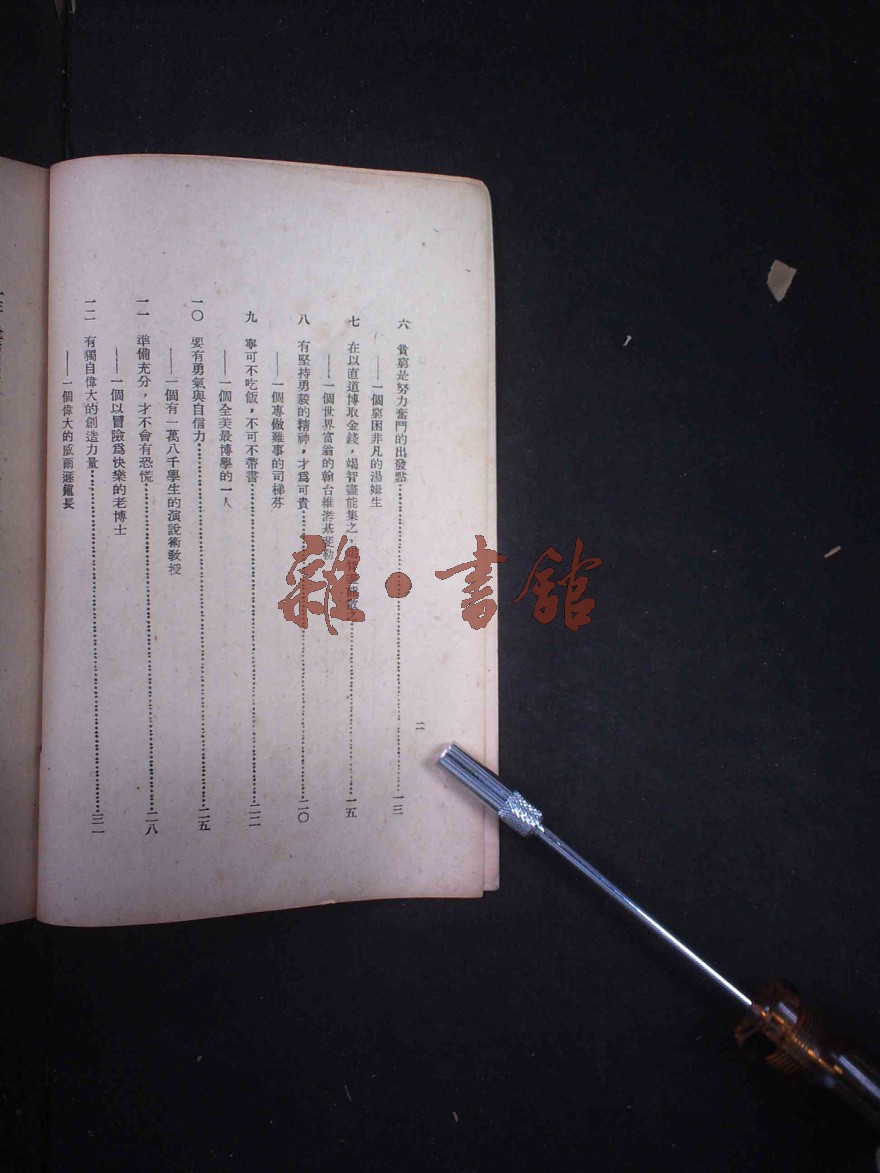 六　貧窮是努力奮鬥的出發點……一三
——一個窮困非凡的湯姆生
七　在以直道博取金錢，竭智盡能集之，……一五
——一個世界富翁的翰台維游基斐勒
八　有堅持勇毅的精神，才爲可貴……二〇
——一個專做難事的司梯芬
九　寧可不吃飯，不可不帶書……二二
——一個全美最博學的一人
一〇　要有勇氣與自信力……二五
——一個有一萬八千學生的演說術教授
一一　準備充分，才不會有恐慌……二八
——一個以冒險爲快樂的老博士
一二　有獨自偉大的創造力量……三一
——一個偉大的威爾遜鎮長
二
雜·書館